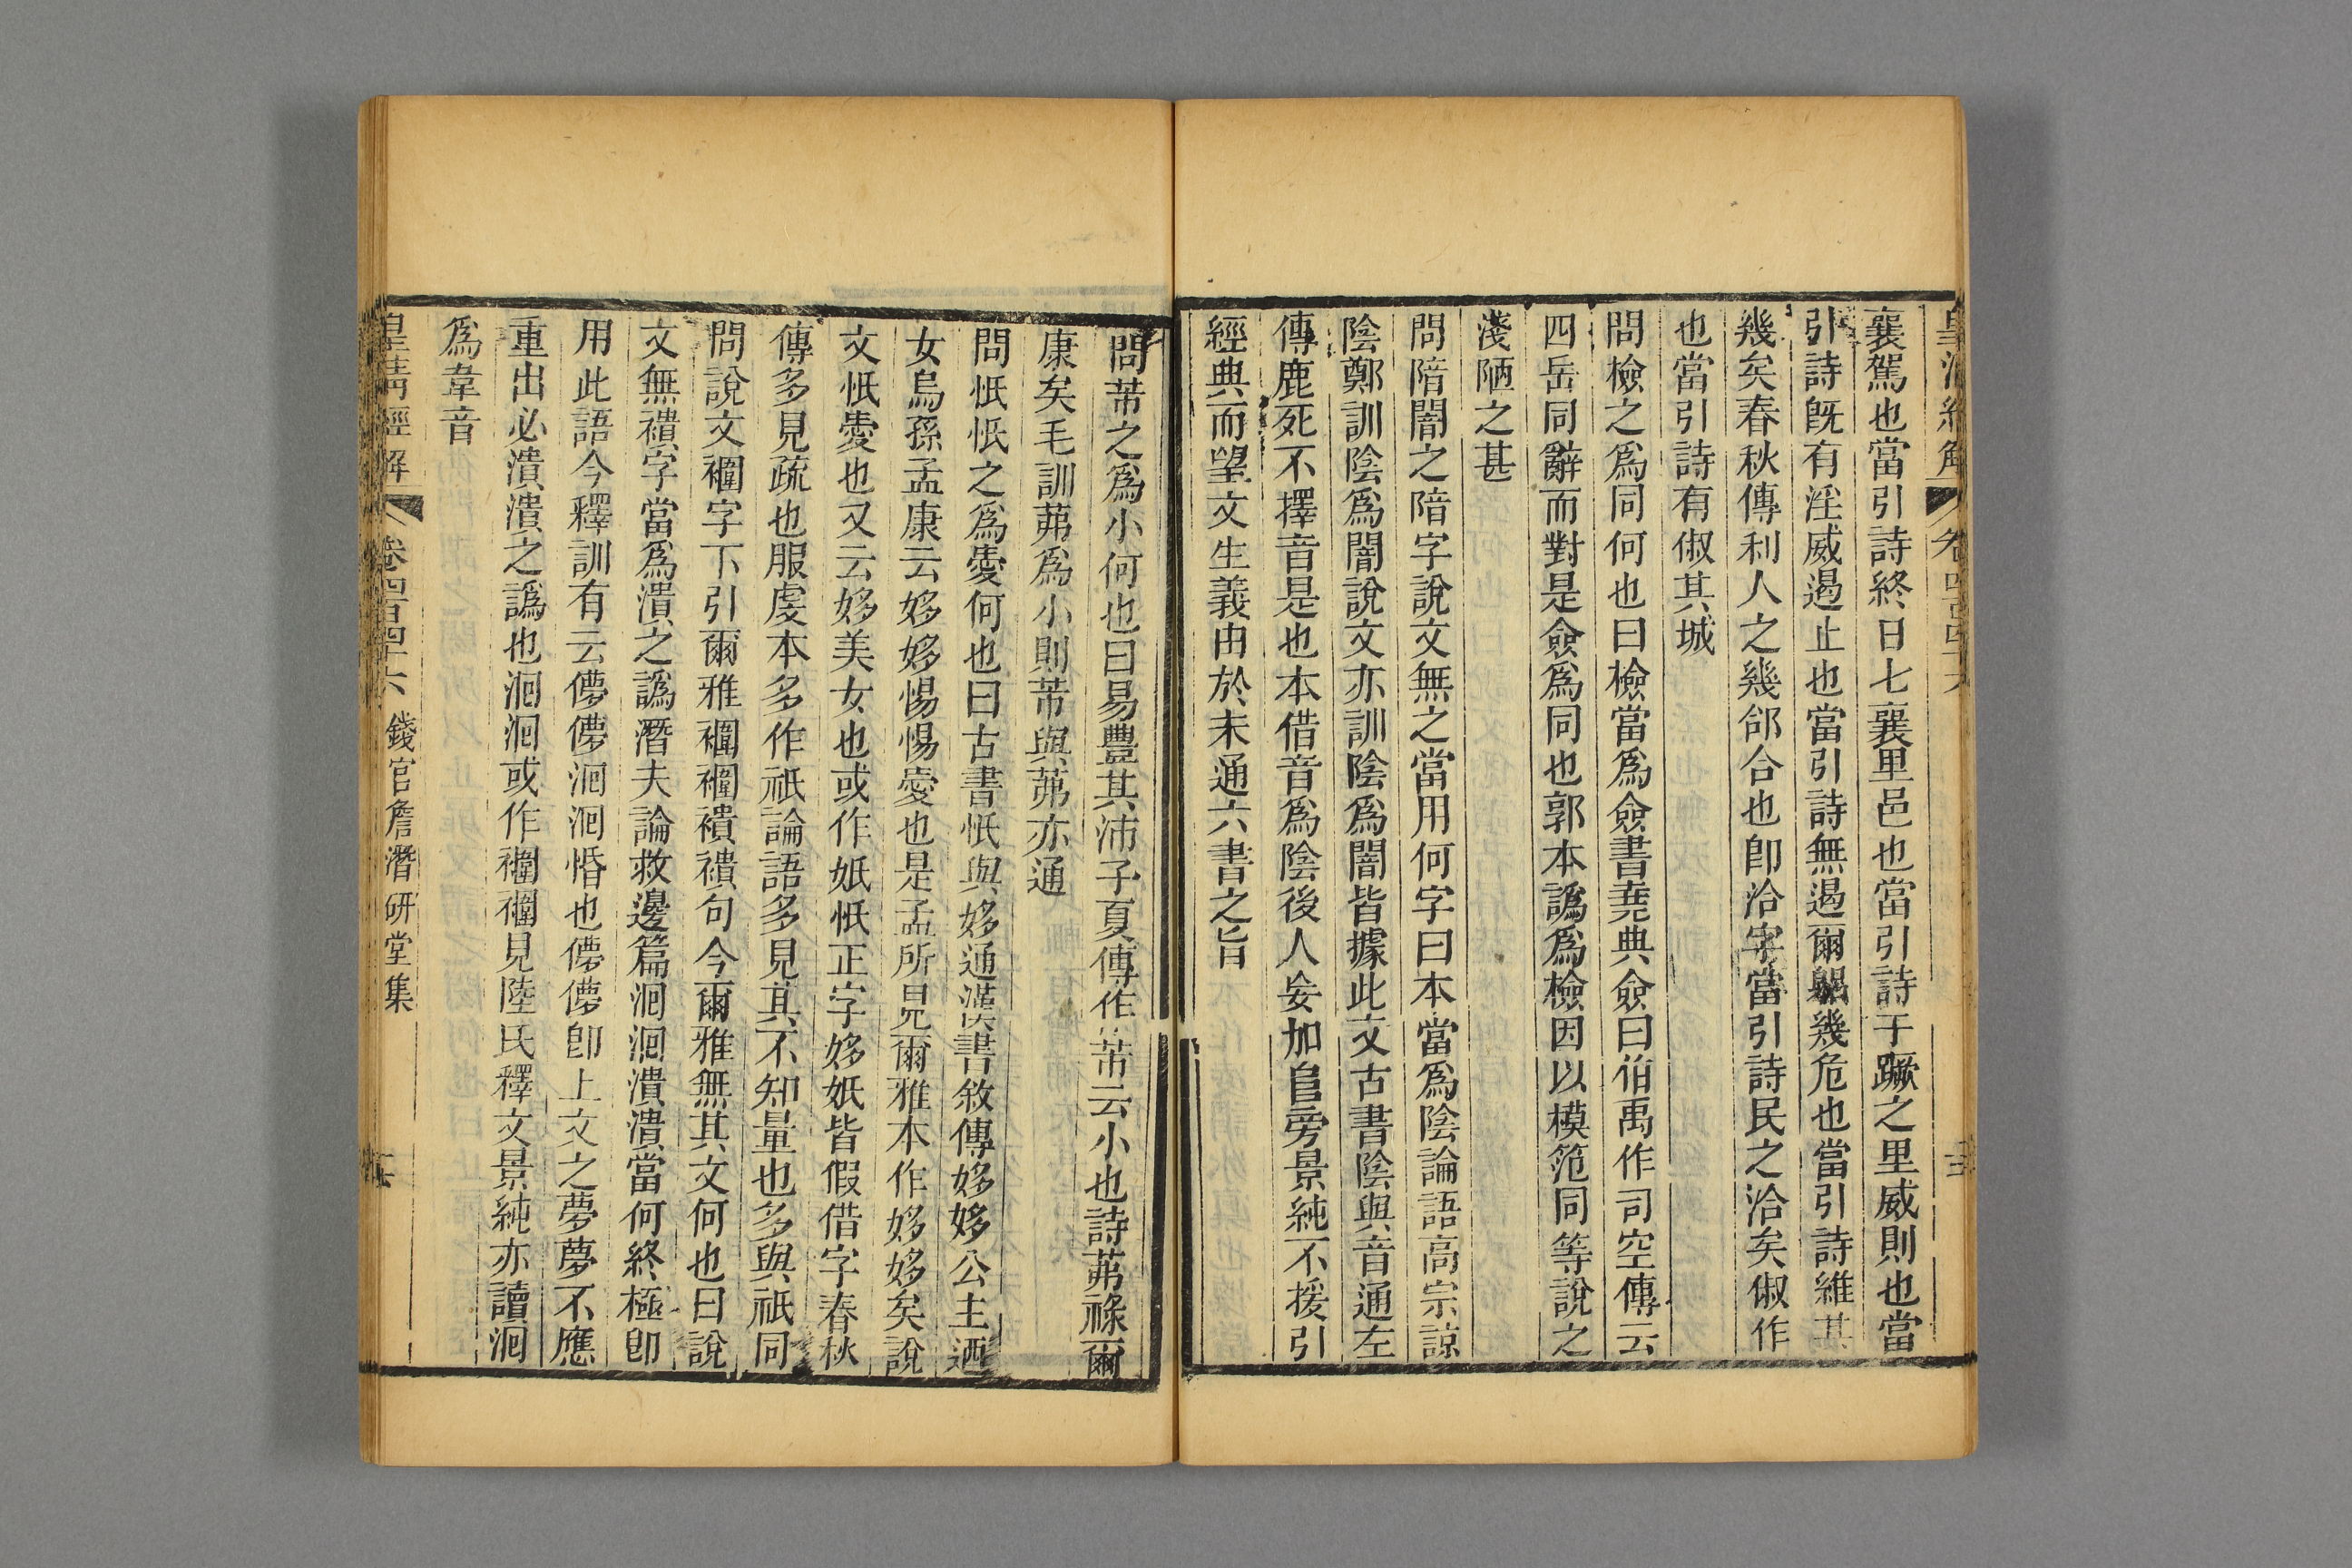 襄駕也當引詩終日七襄里邑也當引詩于蹶之里威則也當
引詩旣有淫威遏止也當引詩無遏爾躳幾危也當引詩維其
幾矣春秋傳利人之幾郃合也卽洽字當引詩民之洽矣俶作
也當引詩有俶其城
問檢之爲同何也曰檢當爲僉書堯典僉曰伯禹作司空傳云
四岳同辭而對是僉爲同也郭本譌爲檢因以模范同等說之
淺陋之甚
問陪闇之陪字說文無之當用何字曰本當爲陰論語高宗諒
陰鄭訓陰爲闇說文亦訓陰爲闇皆據此文古書陰與音通左
傳鹿死不擇音是也本借音爲陰後人妄加𨸏旁景純不援引
經典而望文生義由於未通六書之旨
問芾之爲小何也曰易豐其沛子夏傳作芾云小也詩茀祿爾
康矣毛訓茀爲小則芾與茀亦通
問忯忯之爲愛何也曰古書忯與姼通漢書敘傳姼姼公主迺
女烏孫孟康云姼姼惕惕愛也是孟所見爾雅本作姼姼矣說
文忯愛也又云姼美女也或作妷忯正字姼妷皆假借字春秋
傳多見疏也服虔本多作祇論語多見其不知量也多與祇同
問說文襧字下引爾雅襧襧襀襀句今爾雅無其文何也曰說
文無襀字當爲潰之譌潛夫論救邊篇洄洄潰潰當何終極卽
用此語今釋訓有云儚儚洄洄惛也儚儚卽上文之夢夢不應
重出必潰潰之譌也洄洄或作襧襧見陸氏釋文景純亦讀洄
爲韋音
皇淸經解 卷四百四十六 錢宮詹潛研堂集